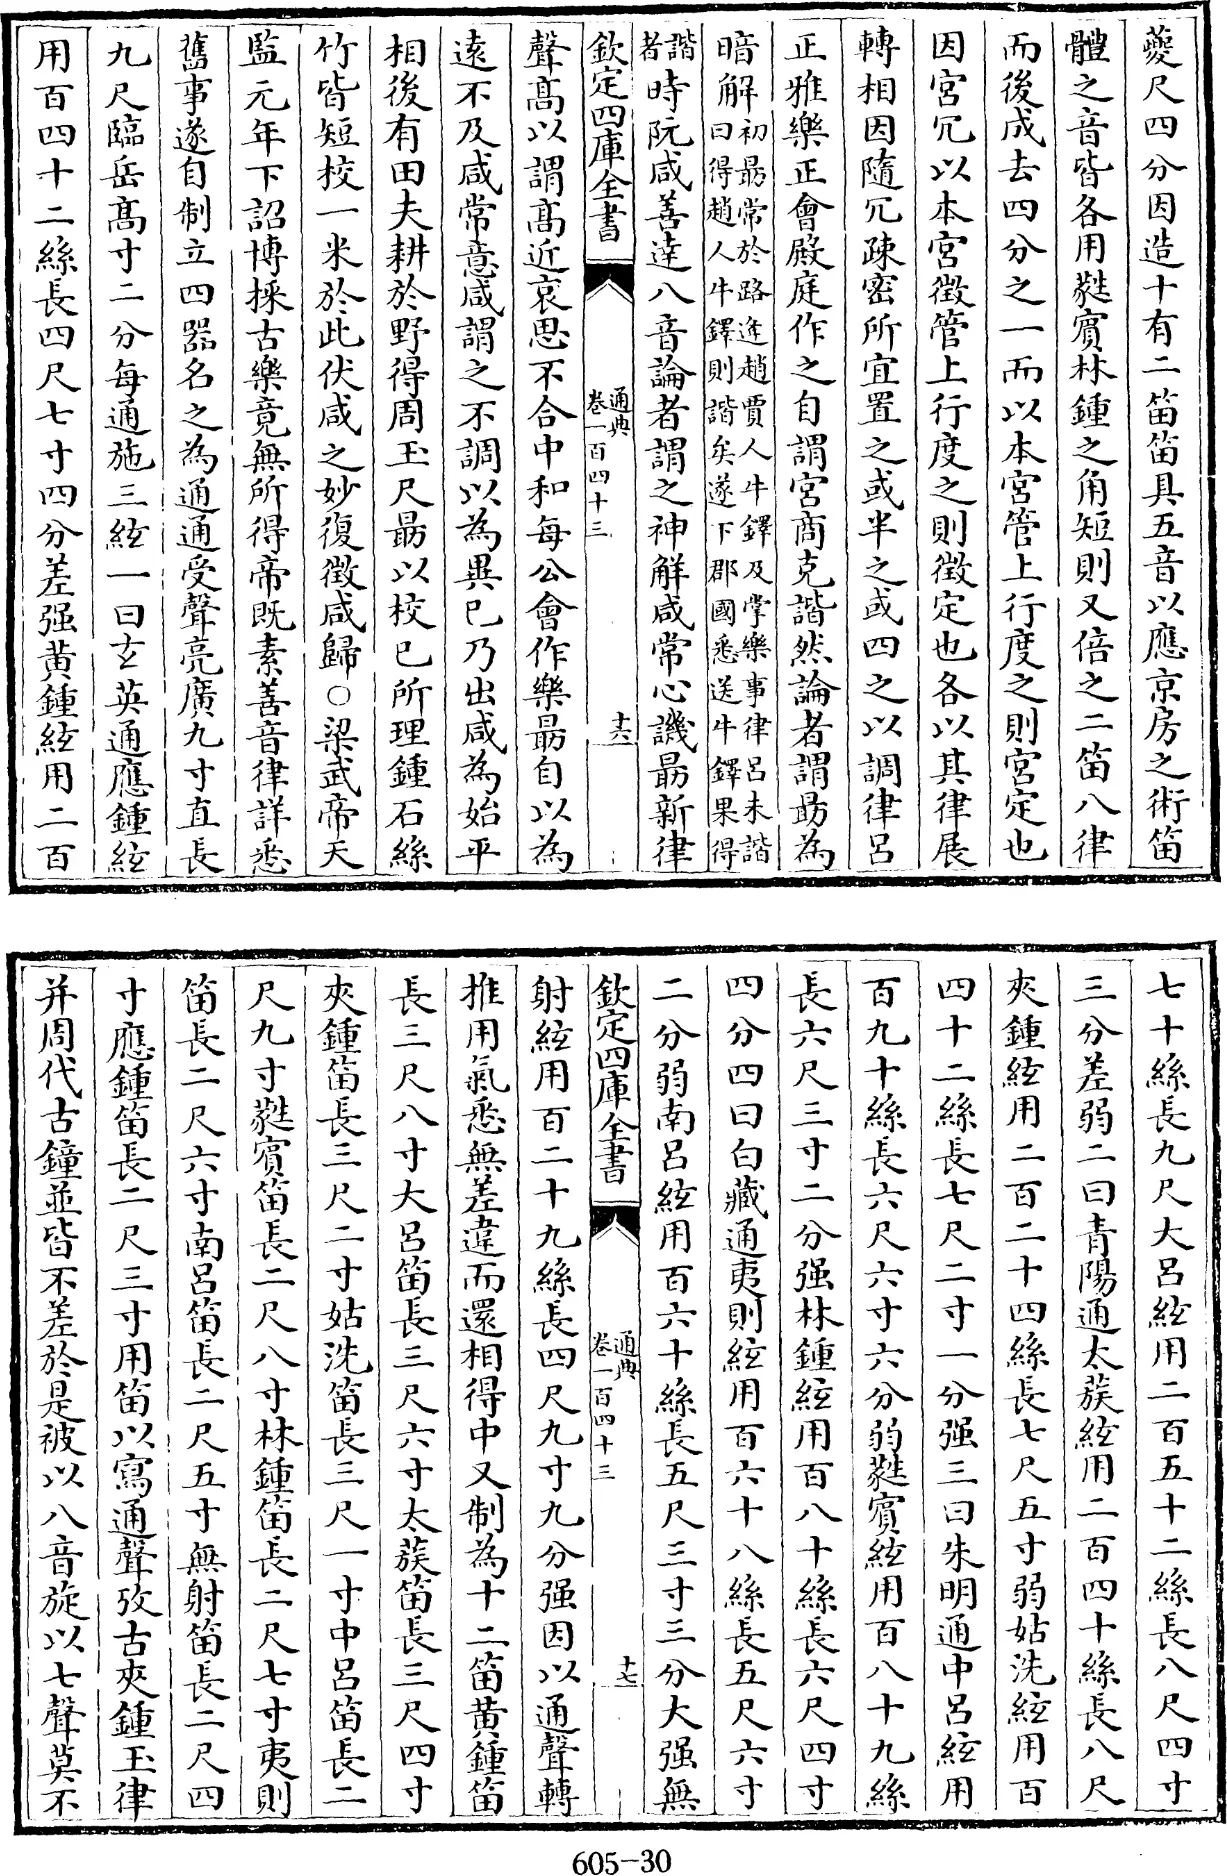 夔尺四分因造十有二笛笛具五音以應京房之術笛
體之音皆各用蕤賓林鍾之角短則又倍之二笛八律
而後成去四分之一而以本宮管上行度之則宮定也
因宮冗以本宮徴管上行度之則徴定也各以其律展
轉相因隨冗疎密所宜置之或半之或四之以調律呂
正雅樂正會殿庭作之自謂宮商克諧然論者謂勗為
暗解初勗常於路逢趙賈人牛鐸及掌樂事律呂未諧
曰得趙人牛鐸則諧矣遂下郡國悉送牛鐸果得
諧者時阮咸善達八音論者謂之神解咸常心譏勗新律
欽定四庫全書
通典
卷一百四十三
十六
聲髙以謂髙近哀思不合中和每公會作樂勗自以為
遠不及咸常意咸謂之不調以為異已乃出咸為始平
相後有田夫耕於野得周玉尺勗以校已所理鍾石絲
竹皆短校一米於此伏咸之妙復徴咸歸○梁武帝天
監元年下詔博採古樂竟無所得帝既素善音律詳悉
舊事遂自制立四器名之為通通受聲亮廣九寸直長
九尺臨岳髙寸二分每通施三絃一曰玄英通應鍾絃
用百四十二絲長四尺七寸四分差强黄鍾絃用二百
七十絲長九尺大呂絃用二百五十二絲長八尺四寸
三分差弱二曰青陽通太蔟絃用二百四十絲長八尺
夾鍾絃用二百二十四絲長七尺五寸弱姑洗絃用百
四十二絲長七尺二寸一分强三曰朱明通中呂絃用
百九十絲長六尺六寸六分弱蕤賓絃用百八十九絲
長六尺三寸二分强林鍾絃用百八十絲長六尺四寸
四分四曰白藏通夷則絃用百六十八絲長五尺六寸
二分弱南呂絃用百六十絲長五尺三寸三分大强無
欽定四庫全書
通典
卷一百四十三
十七
射絃用百二十九絲長四尺九寸九分强因以通聲轉
推用氣悉無差違而還相得中又制為十二笛黄鍾笛
長三尺八寸大呂笛長三尺六寸太蔟笛長三尺四寸
夾鍾笛長三尺二寸姑洗笛長三尺一寸中呂笛長二
尺九寸蕤賓笛長二尺八寸林鍾笛長二尺七寸夷則
笛長二尺六寸南呂笛長二尺五寸無射笛長二尺四
寸應鍾笛長二尺三寸用笛以寫通聲攷古夾鍾玉律
并周代古鐘並皆不差於是被以八音旋以七聲莫不
605-30